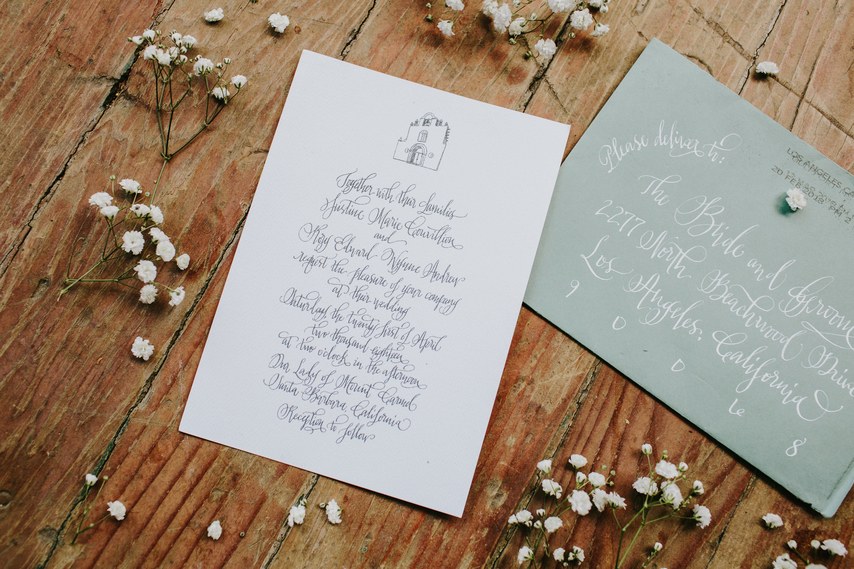 Together with their families
Justine Marie
and
Edward Andrew
request the pleasure of your company
at their wedding
Saturday, the twenty first of April
two thousand eighteen
at two o'clock in the afternoon
Our Lady of Mount Carmel
Santa Barbara, California
Reception to follow
Please deliver to:
The Bride and Groom
2277 North Beachwood Drive
Los Angeles, California
9 0 0 6 8
LOS ANGELES CA